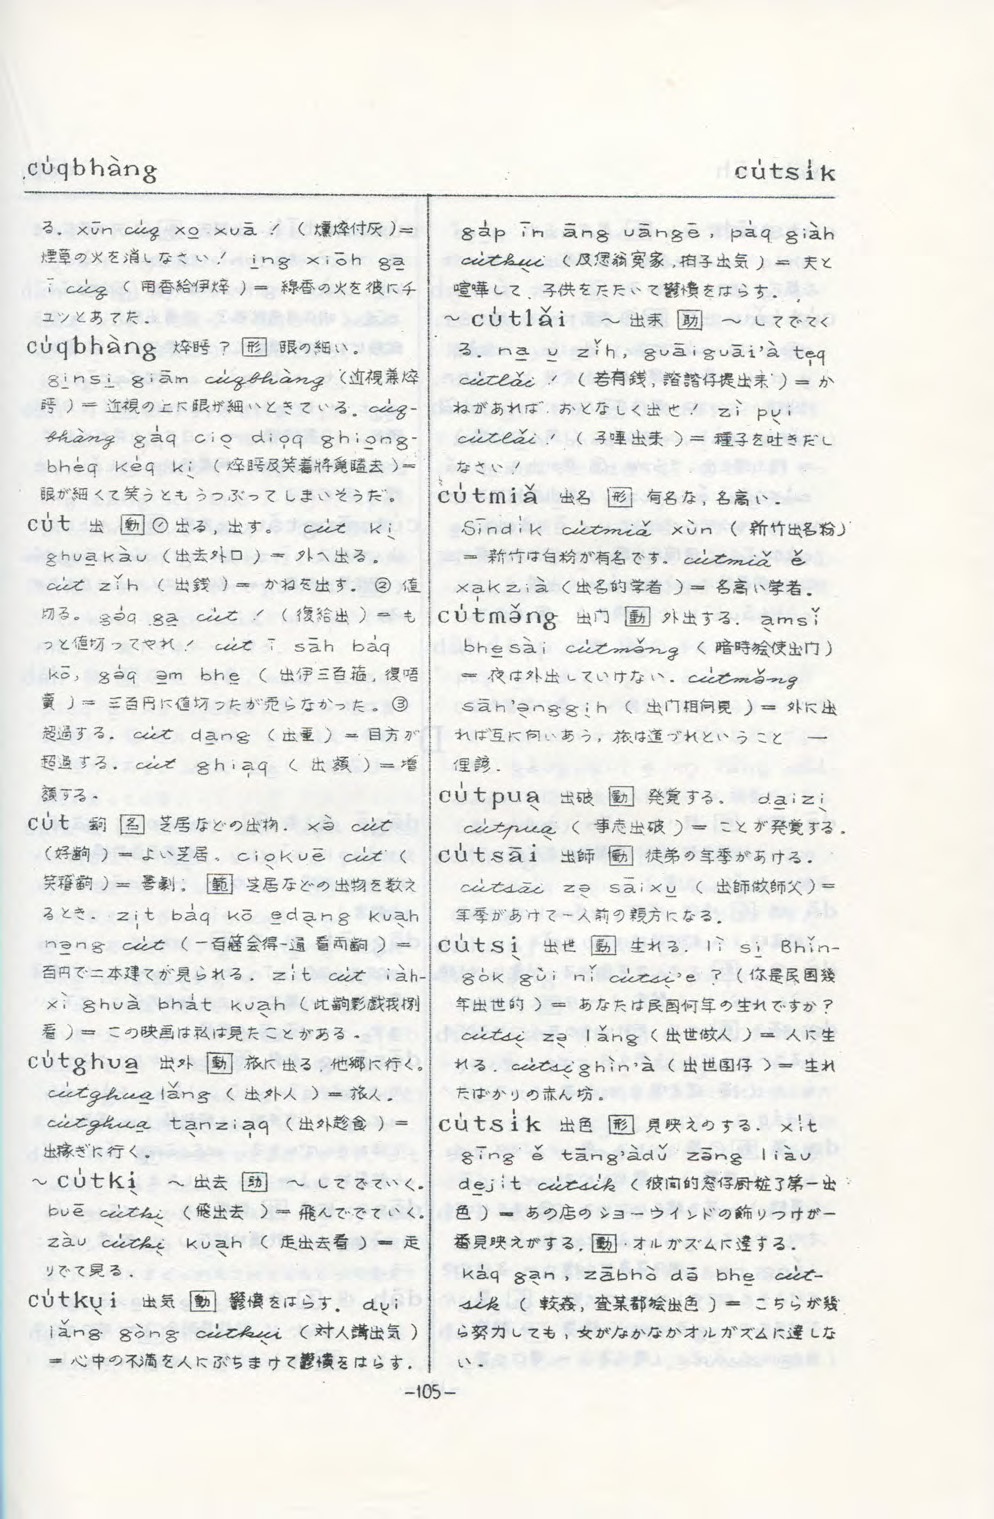 cu̍qbhàng
cu̍tsi̍k
る. xūn cu̍q xo̱ xuā ! ( 燻焠付灰 )=
煙草の火を消しなさい! i̱ng xiōh ga
ī cu̍q ( 用香給伊焠 ) = 線香の火を彼にチ
ュッとあてた.
cu̍qbhàng 焠盱 ? [形] 眼の細い.
gi̱nsi̱ giām cu̍qbhàng (近視兼焠
盱 ) = 近視の上に眼が細いときている. cu̍q-
bhàng gáq ciọ diọq ghiọng-
bhéq kéq kị (焠盱及笑着将覔瞌去 )=
眼が細くて笑うともうつぶってしまいそうだ.
cu̍t 出 [動] ① 出る, 出す. cu̍t kị
ghuạkàu (出去外口 ) = 外へ出る.
cu̍t zǐh ( 出銭 ) = かねを出す. ② 値
切る. gə́q gạ cu̍t ! ( 復給出 ) = も
っと値切ってやれ! cu̍t ī sāh báq
kō, gə́q ə̱m bhẹ ( 出伊三百箍, 復唔
賣 ) = 三百円に値切ったが売らなかった. ③
超過する. cu̍t dạng (出重 ) = 目方が
超過する. cu̍t ghiạq ( 出額 ) = 増
額する.
cu̍t 齣 [名] 芝居などの出物. xə̀ cu̍t
(好齣 ) = よい芝居. ciọkuē cu̍t (
笑稽齣 ) = 喜劇. [範] 芝居などの出物を数え
るとき. zịt báq kō ẹdạng kuạh
nə̱ng cu̍t (一百箍会得通看両齣 ) =
百円で二本建てが見られる. zít cu̍t iàh-
xì ghuà bhát kuạh (此齣影戯我捌
看 ) = この映画は私は見たことがある.
cu̍tghuạ 出外 [動] 旅に出る, 他郷に行く.
cu̍tghuạ lǎng ( 出外人 ) = 旅人.
cu̍tghuạ tạnziạq (出外趁食 ) =
出稼ぎに行く.
~ cu̍tkị ~ 出去 [助] ~ してでていく.
buē cu̍tkị (飛出去 ) = 飛んででていく.
zàu cu̍tkị kuạh ( 走出去看 ) = 走
りでて見る.
cu̍tkụi 出気 [動] 鬱憤をはらす. dụi
lǎng gòng cu̍tkụi ( 対人講出気 )
= 心中の不満を人にぶちまけて鬱憤をはらす.
gáp īn āng uāngē, páq giàh
cu̍tkụi ( 及怹翁冤家, 拍子出気 ) = 夫と
喧嘩して, 子供をたたいて鬱憤をはらす.
~ cu̍tlǎi ~ 出来 [助] ~ してでてく
る. nạ ụ zǐh, guāiguāi'à tẹq
cu̍tlǎi ! ( 若有銭, 提出来 ) = か
ねがあれば おとなしく出せ! zì pụi
cu̍tlǎi ! ( 子出来 ) = 種子を吐きだし
なさい!
cu̍tmiǎ 出名 [形] 有名な, 名高い.
Sīndi̍k cu̍tmiǎ xùn ( 新竹出名粉)
= 新竹は白粉が有名です. cu̍tmiǎ ě
xạkzịà (出名的学者 ) = 名高い学者.
cu̍tmə̌ng 出门 [動] 外出する. ạmsǐ
bhẹsài cu̍tmə̌ng ( 暗時使出门 )
= 夜は外出していけない. cu̍tmə̌ng
sāh'ə̱nggịh ( 出门相向見 ) = 外に出
れば互に向いあう, 旅は道づれということ ―
俚諺.
cu̍tpuạ 出破 [動] 発覚する. dạizị
cu̍tpuạ ( 事志出破 ) = ことが発覚する.
cu̍tsāi 出師 [動] 徒弟の年季があける.
cu̍tsāi zə̱ sāixụ ( 出師做師父 ) =
年季があけて一人前の親方になる.
cu̍tsị 出世 [動] 生れる. lì sị Bhǐn-
gók gùi nǐ cu̍tsị'e ? ( 你是民国幾
年出世的 ) = あなたは民国何年の生れですか?
cu̍tsị zə̱ lǎng ( 出世做人 ) = 人に生
れる. cu̍tsị ghìn'à ( 出世囝仔 ) = 生れ
たばかりの赤ん坊.
cu̍tsi̍k 出色 [形] 見映えのする. xít
gīng ě tāng'àdǔ zāng liàu
dẹjít cu̍tsi̍k ( 彼间的窓仔厨粧了第一出
色 ) = あの店のショーウインドの飾りつけが一
番見映えがする. [動] オルガズムに達する.
káq gạn, zābhò dā bhẹ cu̍t-
si̍k ( 較姦, 査某都出色 ) = こちらが幾
ら努力しても, 女がなかなかオルガズムに達しな
い.
-105-